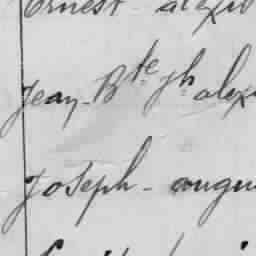 Ernest alexis
Jean-Bte jh alex
Joseph - augu